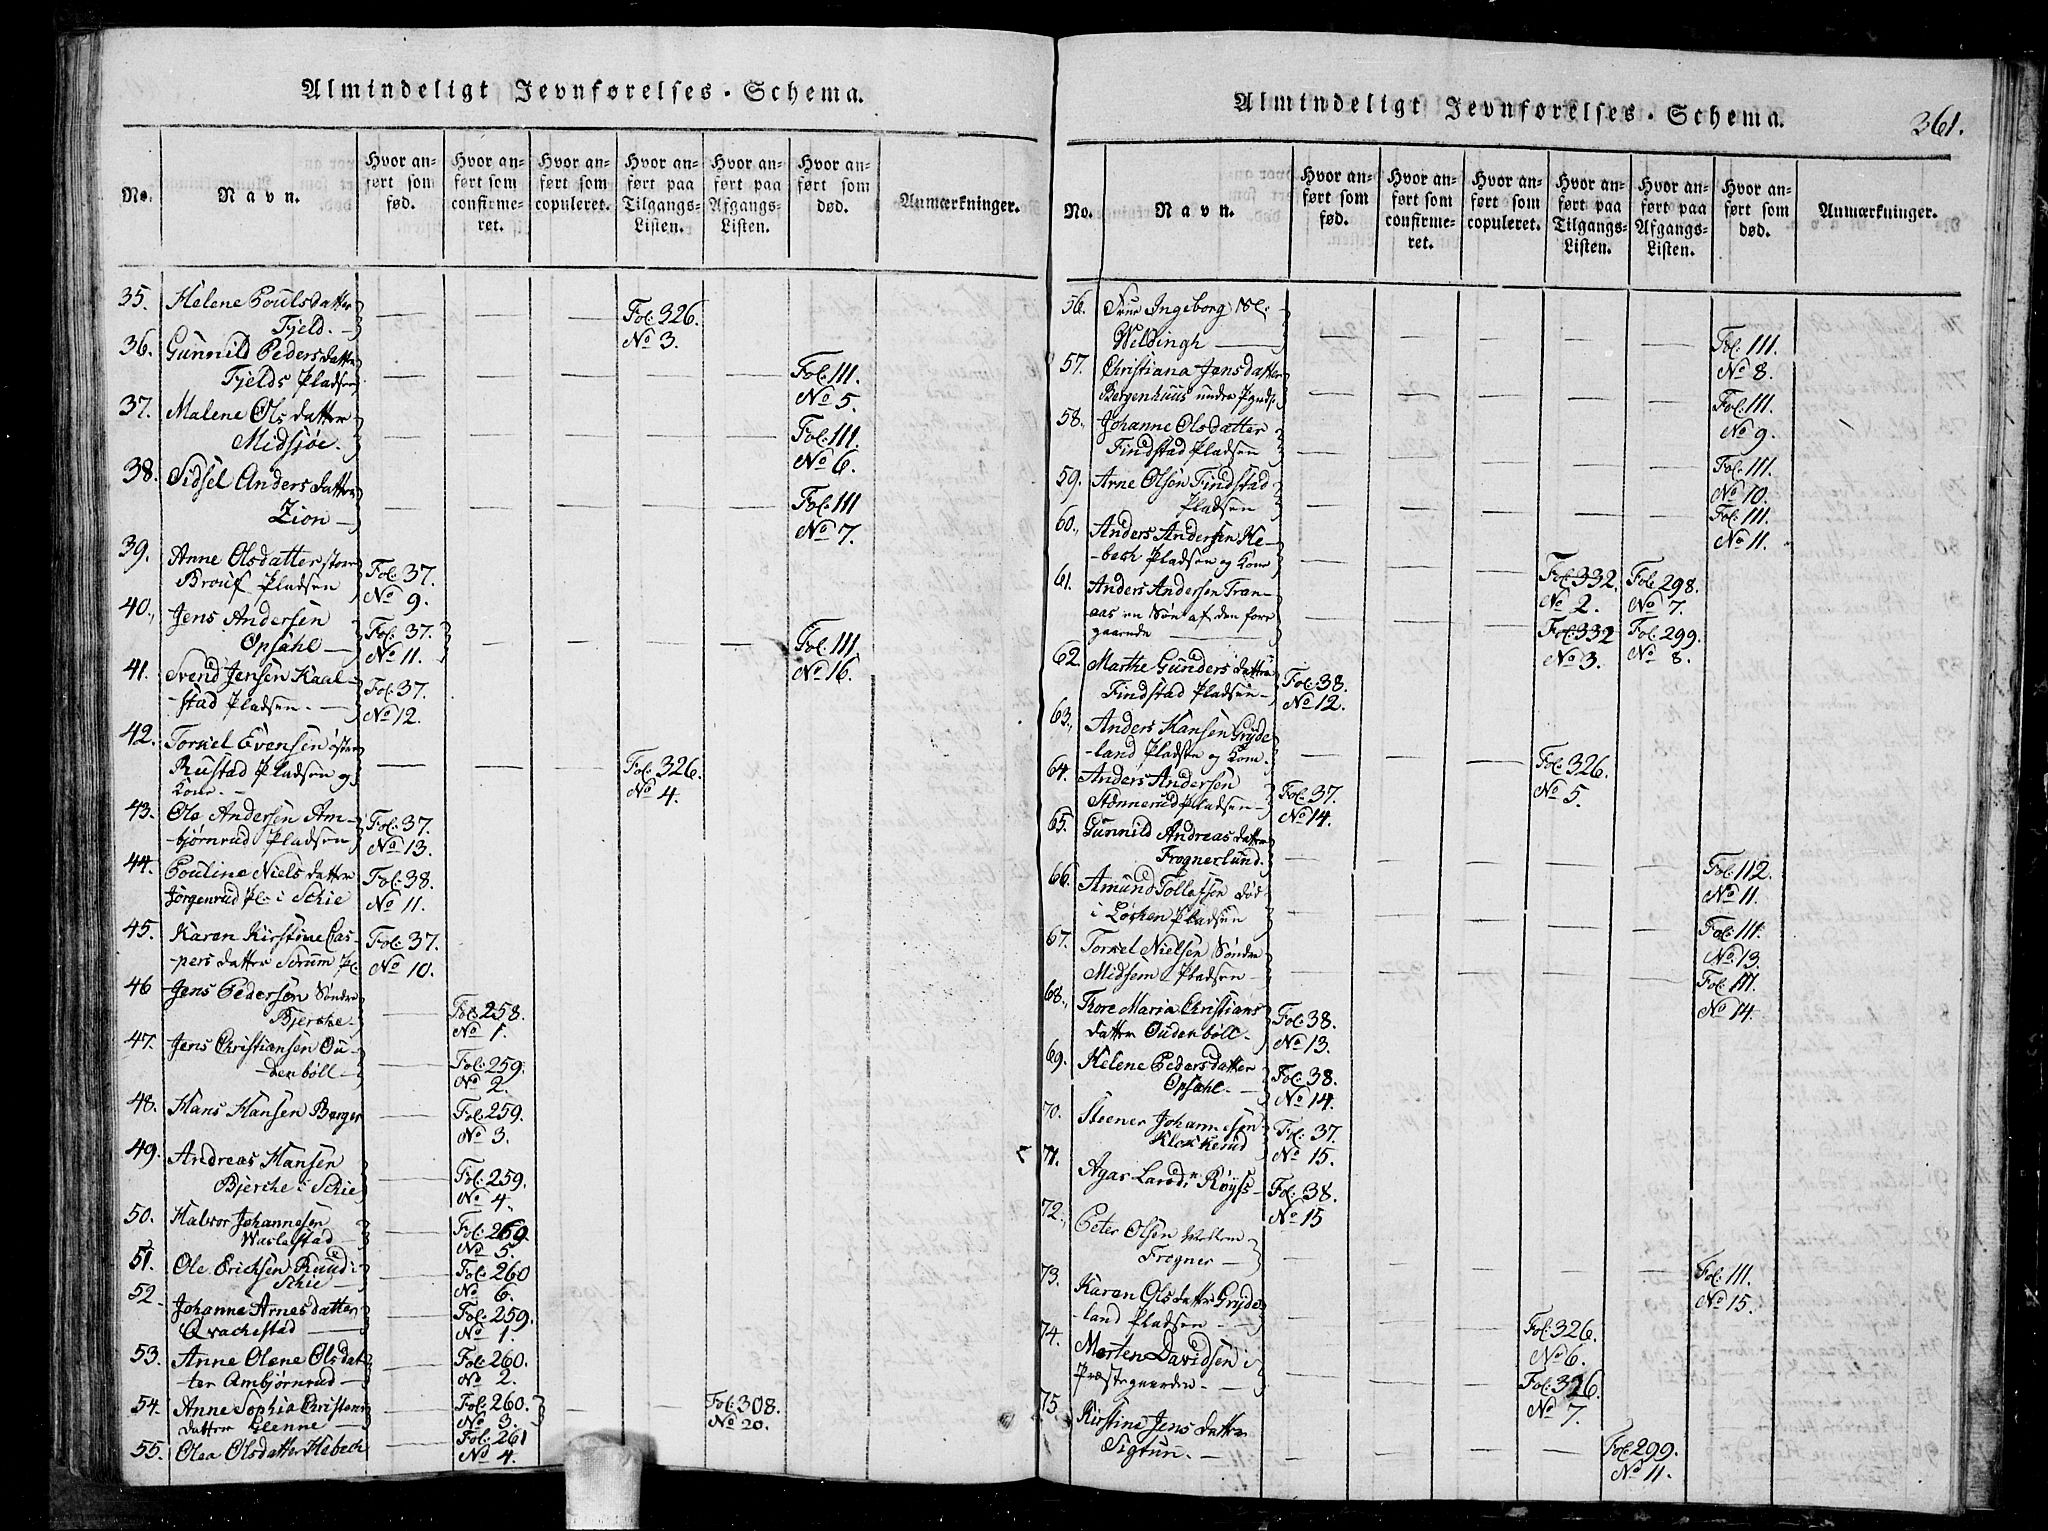 Almindeligt Jevnførelses-Schema.
No. Navn. Hvor anført som fød. Hvor anført som confirmeret. Hvor anført som copuleret. Hvor anført paa Tilgangs-Listen. Hvor anført paa Afgangs-Listen. Hvor anført som død. Anmærkninger.
35. Helene Poulsdatter
Fjeld. — Fol: 326. No 3.
36. Gunnild Pedersdatter
Fjelds Pladsen Fol: 111. No 5.
37. Malene Olsdatter
Midsjøe. Fol: 111. No 6.
38. Sidsel Andersdatter
Zion — Fol: 111 No 7.
39. Anne Olsdatter store
Brouf Pladsen Fol: 37. No 9.
40. Jens Andersen
Opsahl — Fol: 37. No 11. Fol: 111 No 16.
41. Svend Jensen Kaal-
-stad Pladsen. — Fol: 37. No 12.
42. Torkel Evensen öster
Rustad Pladsen og
Kone. — Fol: 326. No 4.
43. Ole Andersen Am-
-bjørnrud Pladsen Fol: 37. No 13.
44. Pouline Nielsdatter
Jørgenrud Pl: i Schie Fol: 38. No 11.
45. Karen Kirstine Cas-
-persdatter Sörum Pl: Fol: 37. No 10.
46 Jens Pedersen Söndre
Bjerche. Fol: 258. No 1.
47. Jens Christiansen Ou-
-denböll — Fol: 259. No 2.
48. Hans Hansen Berger Fol: 259. No 3.
49. Andreas Hansen
Bjerche i Schie Fol: 259. No 4.
50. Halvor Johannesen
Warlestad — Fol: 259. No 5.
51. Ole Ericksen Ruud i
Schie — Fol: 260 No 6.
52. Johanne Arnesdatter
Qvachestad Fol: 259. No 1.
53. Anne Olene Olsdat-
-ter Ambjørnrud — Fol: 260. No 2.
54. Anne Sophia Christens
datter Glenne — Fol: 260. No 3. Fol: 308. No 20.
55. Olea Olsdatter Hebech Fol: 261 No 4.
Almindeligt Jevnførelses-Schema. 361.
No. Navn. Hvor anført som fød. Hvor anført som confirmeret. Hvor anført som copuleret. Hvor anført paa Tilgangs-Listen. Hvor anført paa Afgangs-Listen. Hvor anført som død. Anmærkninger.
56. Frue Ingeborg
Weldingh — Fol: 111. No 8.
57. Christiana Jensdatter
Bergenhuus undre Fol: 111. No 9.
58. Johanne Olsdatter
Findstad Pladsen Fol: 111. No 10.
59. Arne Olsen Findstad
Pladsen Fol: 111. No 11.
60. Anders Andersen He-
-bech Pladsen og Kone Fol: 332. No 2. Fol: 298. No 7.
61. Anders Andersen Tran-
aas en Søn af den fore
gaaende Fol: 332 No 3. Fol: 299. No 8.
62. Marthe Gundersdatter
Findstad Pladsen — Fol: 38. No 12.
63. Anders Hansen Gryde
-land Pladsen og Kone. Fol: 326. No 5.
64. Anders Andersen
Stönnerud Pladsen — Fol: 37. No 14.
65. Gunnild Andreasdatter
Frognerlund. Fol: 112. No 11.
66. Amund Tollefsen död
i Löchen Pladsen Fol: 111. No 13.
67. Torkel Nielsen Söndre
Midsem Pladsen — Fol: 111. No 14.
68. Thore Maria Christians
datter Oudenböll — Fol: 38. No 13.
69. Helene Pedersdatter
Opsahl. — Fol: 38. No 14.
70. Steener Johannesen
Klokkerud Fol: 37. No 15.
71. Agas Larsd.r Röyss — Fol: 38. No 15
72. Peter Olsen
Frogner — Fol: 111. No 15.
73. Karen Olsdatter Gryde
-land Pladsen — Fol: 326. No 6.
74. Morten Davidsen i
Præstegaarden — Fol: 326. No 7.
75. Kirstine Jensdatter
Sigtun. — Fol: 299. No 11.